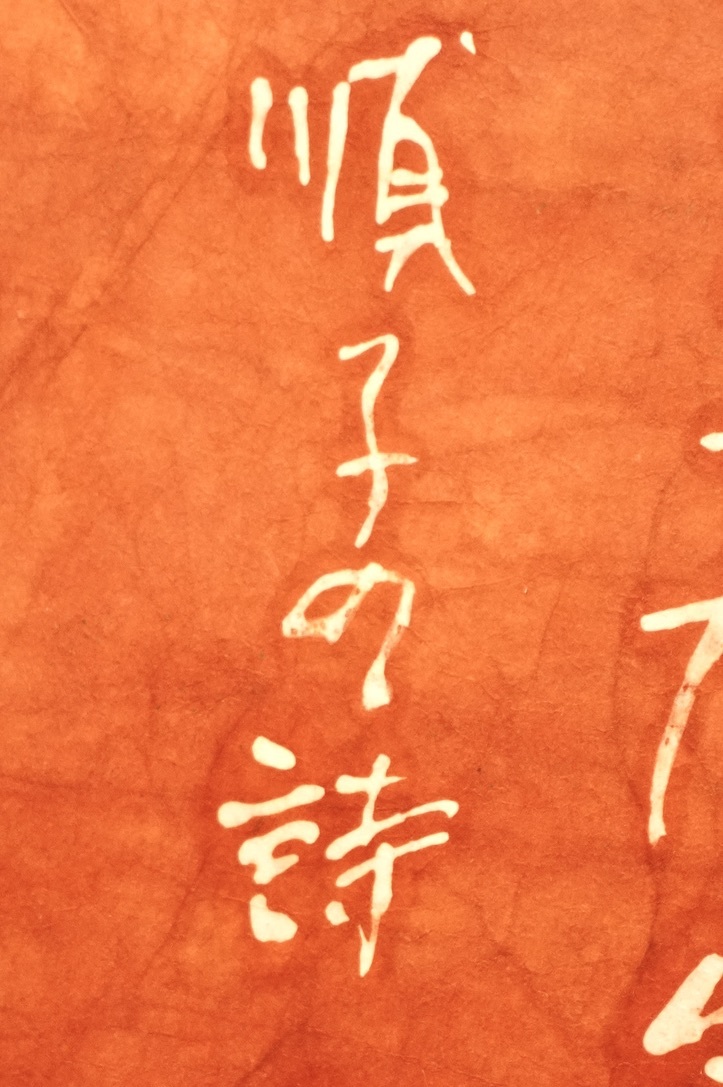 順子の詩